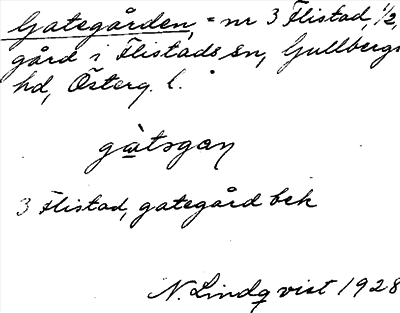 Gategården, = nr 3 Flistad, 1/2,
gård i Flistads sn, Gullbergs
hd, Österg. l.
gàtsgaṇ
3 Flistad, gategård bek
N. Lindqvist 1928